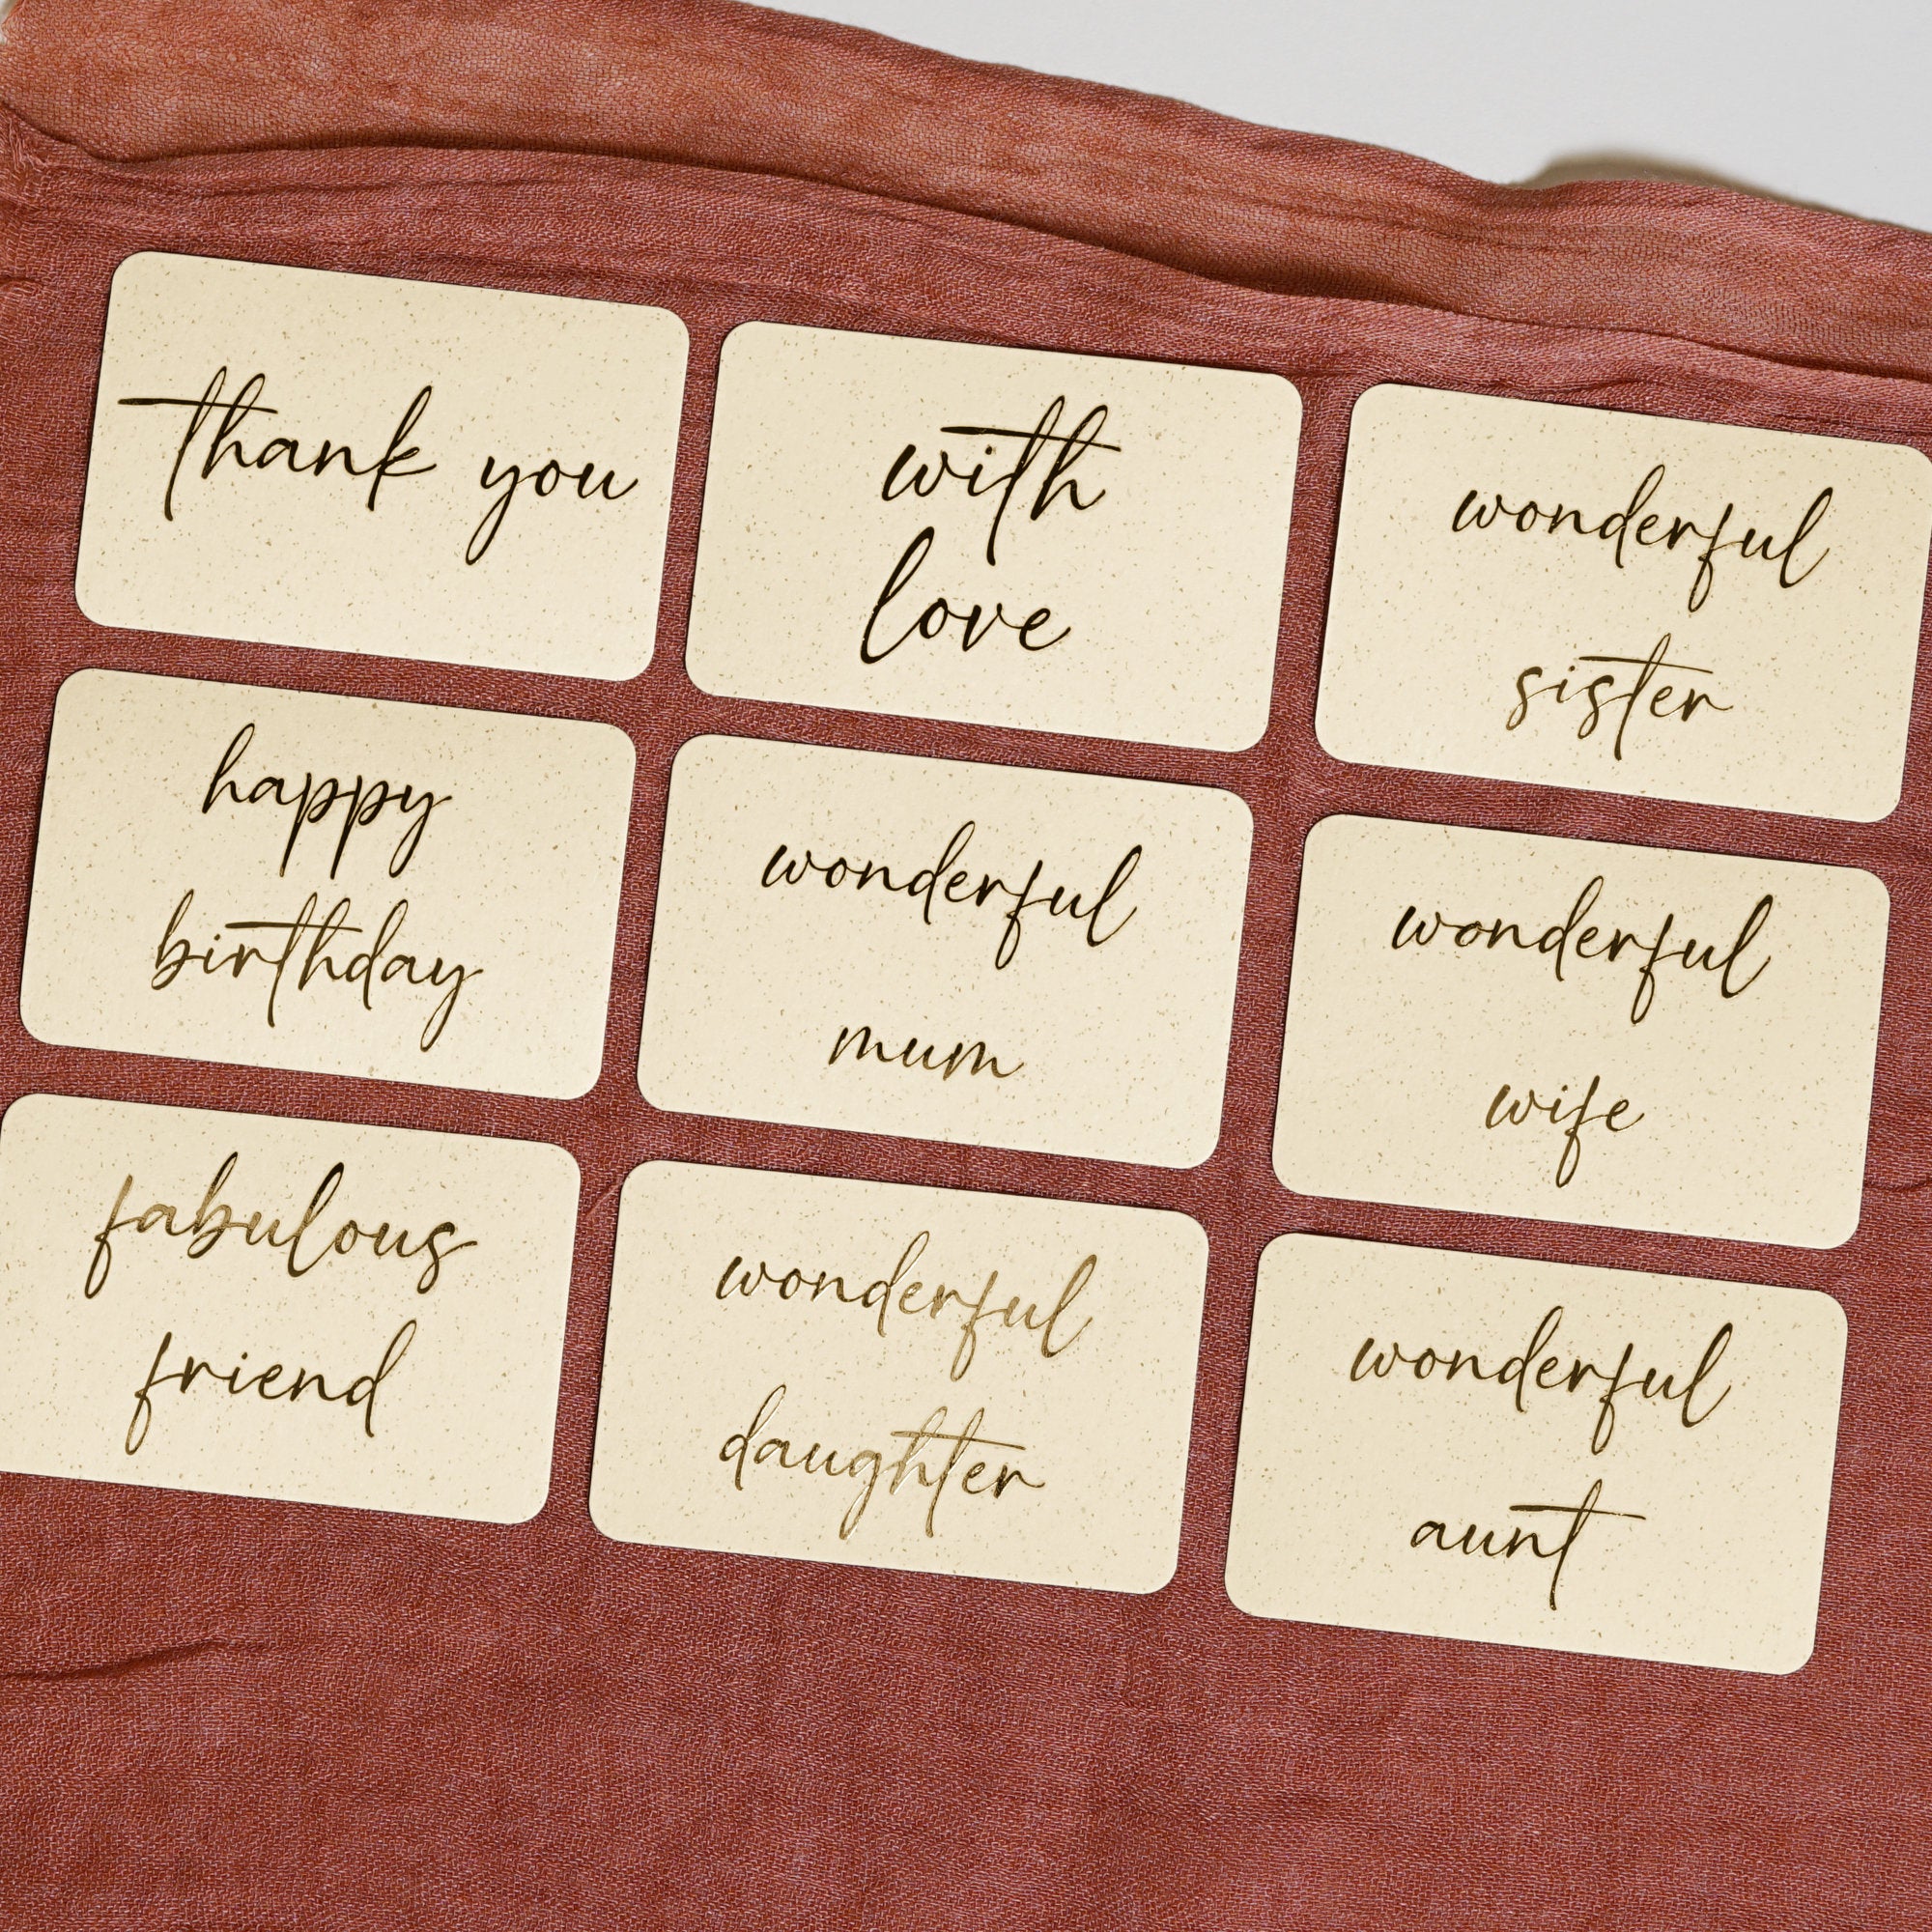 thank you
with
love
wonderful
sister
happy
birthday
wonderful
mum
wonderful
wife
fabulous
friend
wonderful
daughter
wonderful
aunt